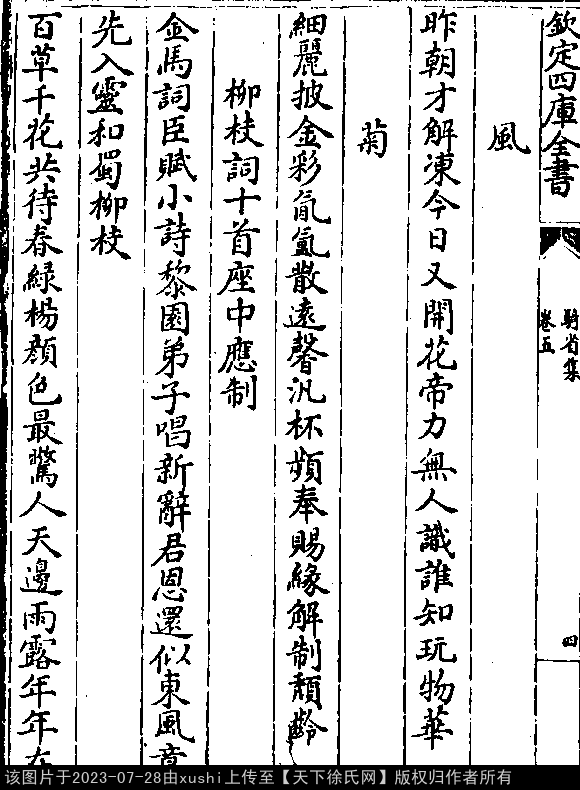 欽定四庫全書
騎省集
卷五
四
風
昨朝才解凍今日又開花帝力無人識誰知玩物華
菊
細麗披金彩氤氳散遠馨汎杯頻奉賜緣解制頹齡
柳枝詞十首座中應制
金馬詞臣賦小詩黎園弟子唱新辭君恩還似東風意
先入靈和蜀柳枝
百草千花共待春綠楊顔色最驚人天邊雨露年年在
该图片于2023-07-28由xushi上传至【天下徐氏网】版权归作者所有